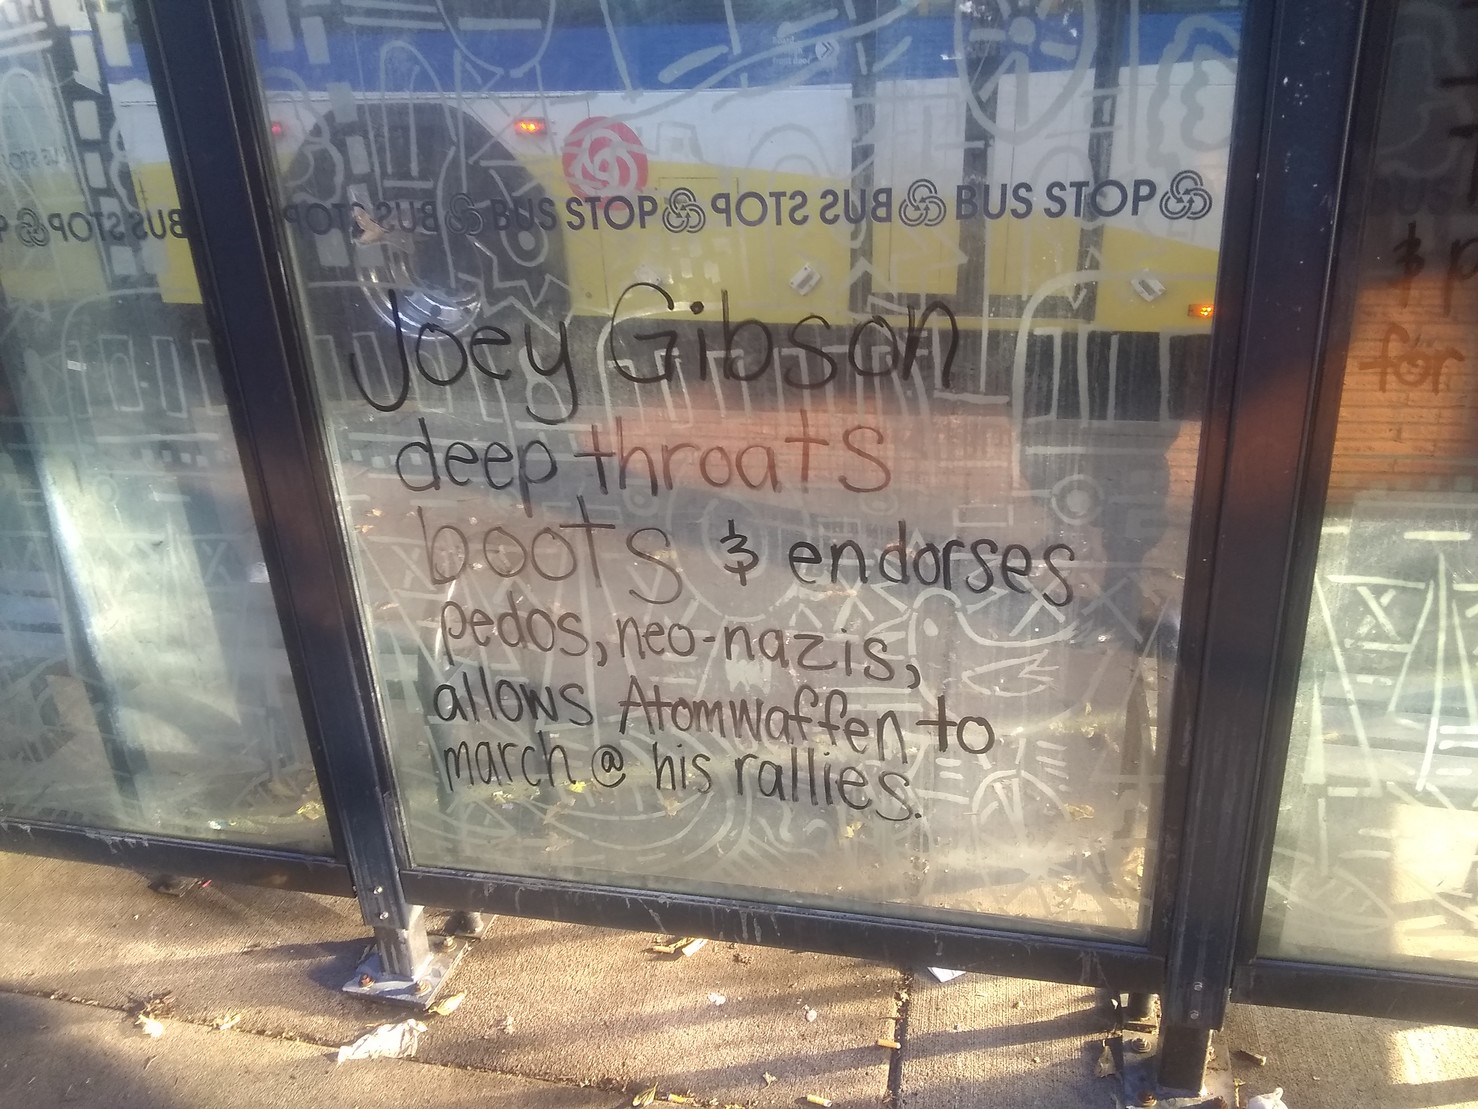 BUS STOP BUS STOP BUS STOP BUS STOP BUS STOP
Joey Gibson
deep throats
boots & endorses
pedos, neo-nazis,
allows Atomwaffen to
march @ his rallies.
&
for